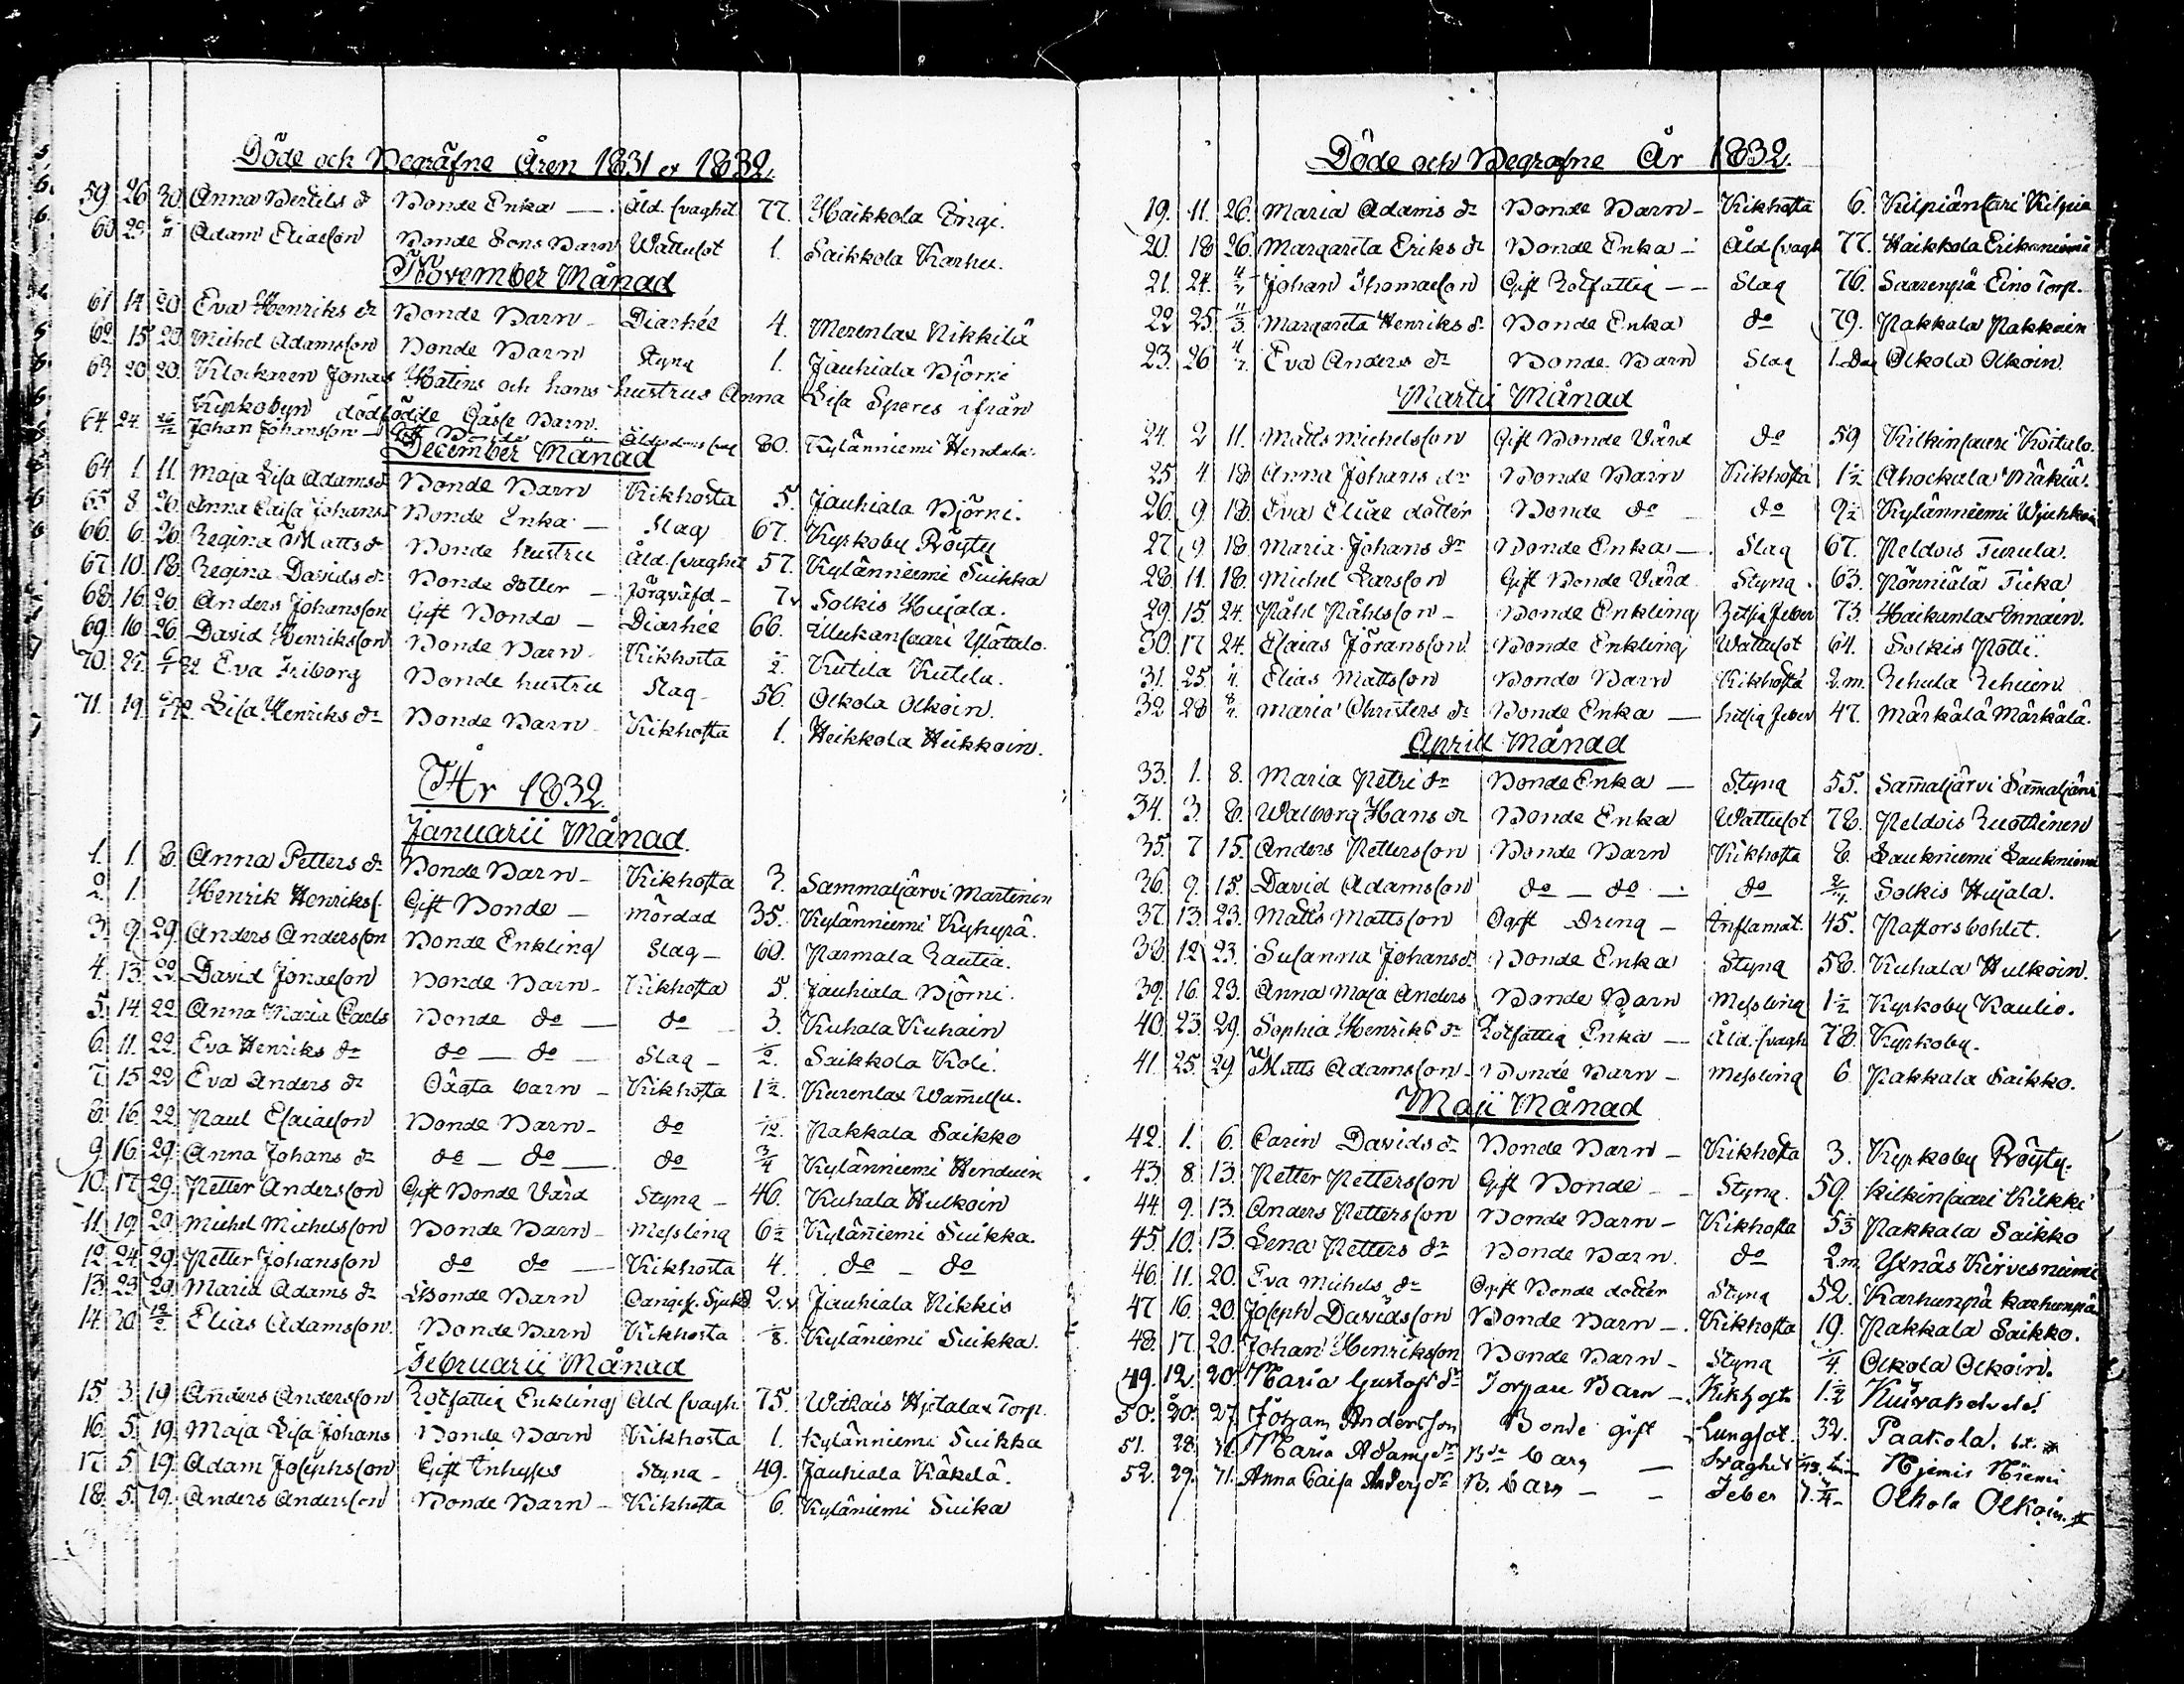 Döde och Begrafne Åren 1831 et 1832.
59. 26 30. Anna Bertils dr Bonde Enka —. Åld. svaghet 77. Haikkola Ingi.
60 29. 6/11 Adam Eliasson Bonde Sons Barn Wattusot 1. Saikkola Karhu.
November Månad
61 14 20. Eva Henriks dr Bonde Barn - Diarhée 4. Merenlax Nikkilä
62. 15 20. Michel Adamsson Bonde Barn Styng 1. Jauhiala Björni
63. 20 20. Klockaren Jonas Hatins och hans hustrus Anna Lisa Speres ifrån
Kyrkobyn dödfödde Gåsse Barn.
64. 24. Johan Johansson — Gift Bonde 80. Kylänniemi Hendula.
December Månad
64. 1. 11. Maja Lisa Adamsd. Bonde Barn Kikhosta 5. Jauhiala Björni.
65 8 26. Anna Caisa Johans Bonde Enka — Slag 67. Kyrkoby Pröyty
66. 6. 26. Regina Matts dr Bonde hustru Åld. svaghet 57. Kylänniemi Suikka
67. 10. 18. Regina Davids dr Bonde dotter — 7 Solkis Hujala.
68. 16 26. Anders Johansson Gift Bonde — Diarhée 66. Utukansaari Ylätalo.
69. 16 26. David Henriksson Bonde Barn - Kikhosta 1/2. Kutila Kutila.
70. 22. Eva Friborg Bonde hustru Slag - 56. Olkola Olkoin.
71. 19. Lisa Henriks dr Bonde Barn - Kikhosta 1. Heikkola Heikkoin.
År 1832.
Januarii Månad.
1. 1. 8. Anna Petters dr Bonde Barn - Kikhosta 3. Sammaljärvi Martinin
2. 1. Henrik Henrikss. Gift Bonde — mördad 35. Kylänniemi Kyhyrä.
3. 9. 29. Anders Andersson Bonde Enkling Slag — 60. Parmala Rautia.
4. 13. 22. David Jonasson Bonde Barn - Kikhosta 5. Jauhiala Björni.
5. 14. 22. Anna Maria Carls Bonde do — do 3. Kuhala Kuhain
6. 11. 22. Eva Henriks dr do — do — Slag — 1/2. Saikkola Koli.
7. 15 22 Eva Anders dr Oägta barn - Kikhosta 1 1/2. Kurenlax Wamelsu.
8. 16. 22. Paul Esaiasson Bonde Barn - do 1/12. Pakkala Saikko
9. 16. 29. Anna Johans dr do — do —. do 3/4 Kylänniemi Henduin
10. 17. 29. Petter Andersson Gift Bonde Värd Styng — 46. Kuhala Hulkoin
11. 19. 29. Michel Michelsson Bonde Barn - Messling 6 1/2 Kylän̄iemi Suikka.
12. 24. 29. Petter Johansson do do — Kikhosta 4. do — do
13. 23. 29. Maria Adams dr Bonde Barn 2. Jauhiala Nikkis
14. 20. 12/2. Elias Adamsson. Bonde Barn Kikhosta 1/8. Kyläniemi Suikka.
Februarii Månad
15. 3. 19. Anders Andersson Rotfattig Enkling Åld svagh. 75. Withais Hietalax Torp.
16. 5. 19. Maja Lisa Johans Bonde Barn Kikhosta 1. Kylänniemi Suikka
17. 5. 19. Adam Josephsson Gift Inhyses Styng - 49. Jauhiala Käkelä.
18. 5. 19. Anders Andersson Bonde Barn - Kikhosta 6. Kyläniemi Suika
Döde och Begrafne År 1832.
19. 11. 26. Maria Adams dr Bonde Barn - Kikhosta 6. Kilpiänsari Kilpia
20. 18 26. Margareta Eriks dr Bonde Enka - Åld svagh 77. Haikkola Erikanniemi
21. 24. 4/3 Johan Thomasson Gift Rotfattig — — Slag 76. Saarenpä Eino Torp.
22 25. 11/3. Margareta Henriks d. Bonde Enka do 79. Pakkala Pakkain
23. 26 Eva Anders dr Bonde. Barn Slag 1. Dag Olkola Olkoin.
Martii Månad
24. 2 11. Matts Michelsson Gift Bonde Värd do 59 Kilkinsaari Koitalo.
25 4. 18. Anna Johans dr Bonde Barn Kikhosta 1 1/2 Ahockala Mäkiä.
26. 9. 18. Eva Eliae dotter Bonde do — do 9 1/2 Kylänniemi
27. 9. 18. Maria Johans dr Bonde Enka —. Slag 67. Peldois Turula.
28. 11. 18. Michel Larsson Gift Bonde Värd Styng. 63. Pönniälä Ticka
29. 15. 24. Påhl Påhlsson - Bonde Enkling Hetsig Feber 73. Haikanlax Ennain.
30. 17 24. Esaias Göransson. Bonde Enkling Wattusot 64. Solkis Pötti.
31. 25 Elias Mattsson Bonde Barn Kikhosta 2. m. Rehula Rehuin
32 28 Maria Christers dr Bonde Enka — hetsig Feber 47. Märkälä Märkälä.
Aprill Månad
33. 1. 8. Maria Petri dr Bonde Enka — Styng 55. Sam̄aljärvi Sam̄aljärvi
34. 3. 8. Walborg Hans dr Bonde Enka Wattusot 78. Peldois Ruothinen
35. 7 15. Anders Pettersson Bonde Barn Kikhosta 8. Laukniemi Laukniemi
36. 9. 15. David Adamsson do — do —. do Solkis Hujala.
37. 13. 23. Matts Mattsson Ogift dreng — Inflamat. 45. Pastorsbohlet.
38. 12 23. Susanna Johansd. Bonde Enka Styng 58. Kuhala Hulkoin.
39. 16. 23. Anna Maja Anders Bonde Barn Messling 1 1/2 Kyrkoby Kaulio.
40. 23. 29. Sophia Henriks dr Rotfattig Enka — Åld. svagh 78. Kyrkoby.
41. 25. 29 Matts Adamsson - Bonde Barn - Messling 6 Pakkala Saikko.
Maji Månad
42. 1. 6. Carin Davids dr Bonde Barn - Kikhosta 3. Kyrkoby Pröyty.
43. 8. 13. Petter Pettersson Gift Bonde - Styng. 59. Kilkinsaari Kilkki
44. 9. 13. Anders Pettersson Bonde Barn - Kikhosta 5 Pakkala Saikko
45. 10. 13. Lena Petters dr Bonde Barn. do 2. m. Yxnäs Kirvesniemi
46. 11. 20. Eva Michels dr Ogift Bonde dotter Styng 52. Karhunpä Karhunpä
47 16. 20. Joseph Davidsson Bonde Barn —. Kikhosta 19. Pakkala Saikko.
48. 17. 20. Johan Henriksson Bonde Barn - Styng 1/4 Olkola Olkoin.
49. 12. 20. Maria Gustafs dr Torpare Barn - Kikhosta 1 1/2
50. 20. 27. Johan Andersson Bonde gift Lungsot. 32. Paakola.
51. 28. 31. Maria Adams dr Bde barn — Svaghet Njemis Niemi
52. 29. 31. Anna Caisa Anders dr B. barn — — Feber Olkola Olkoin.